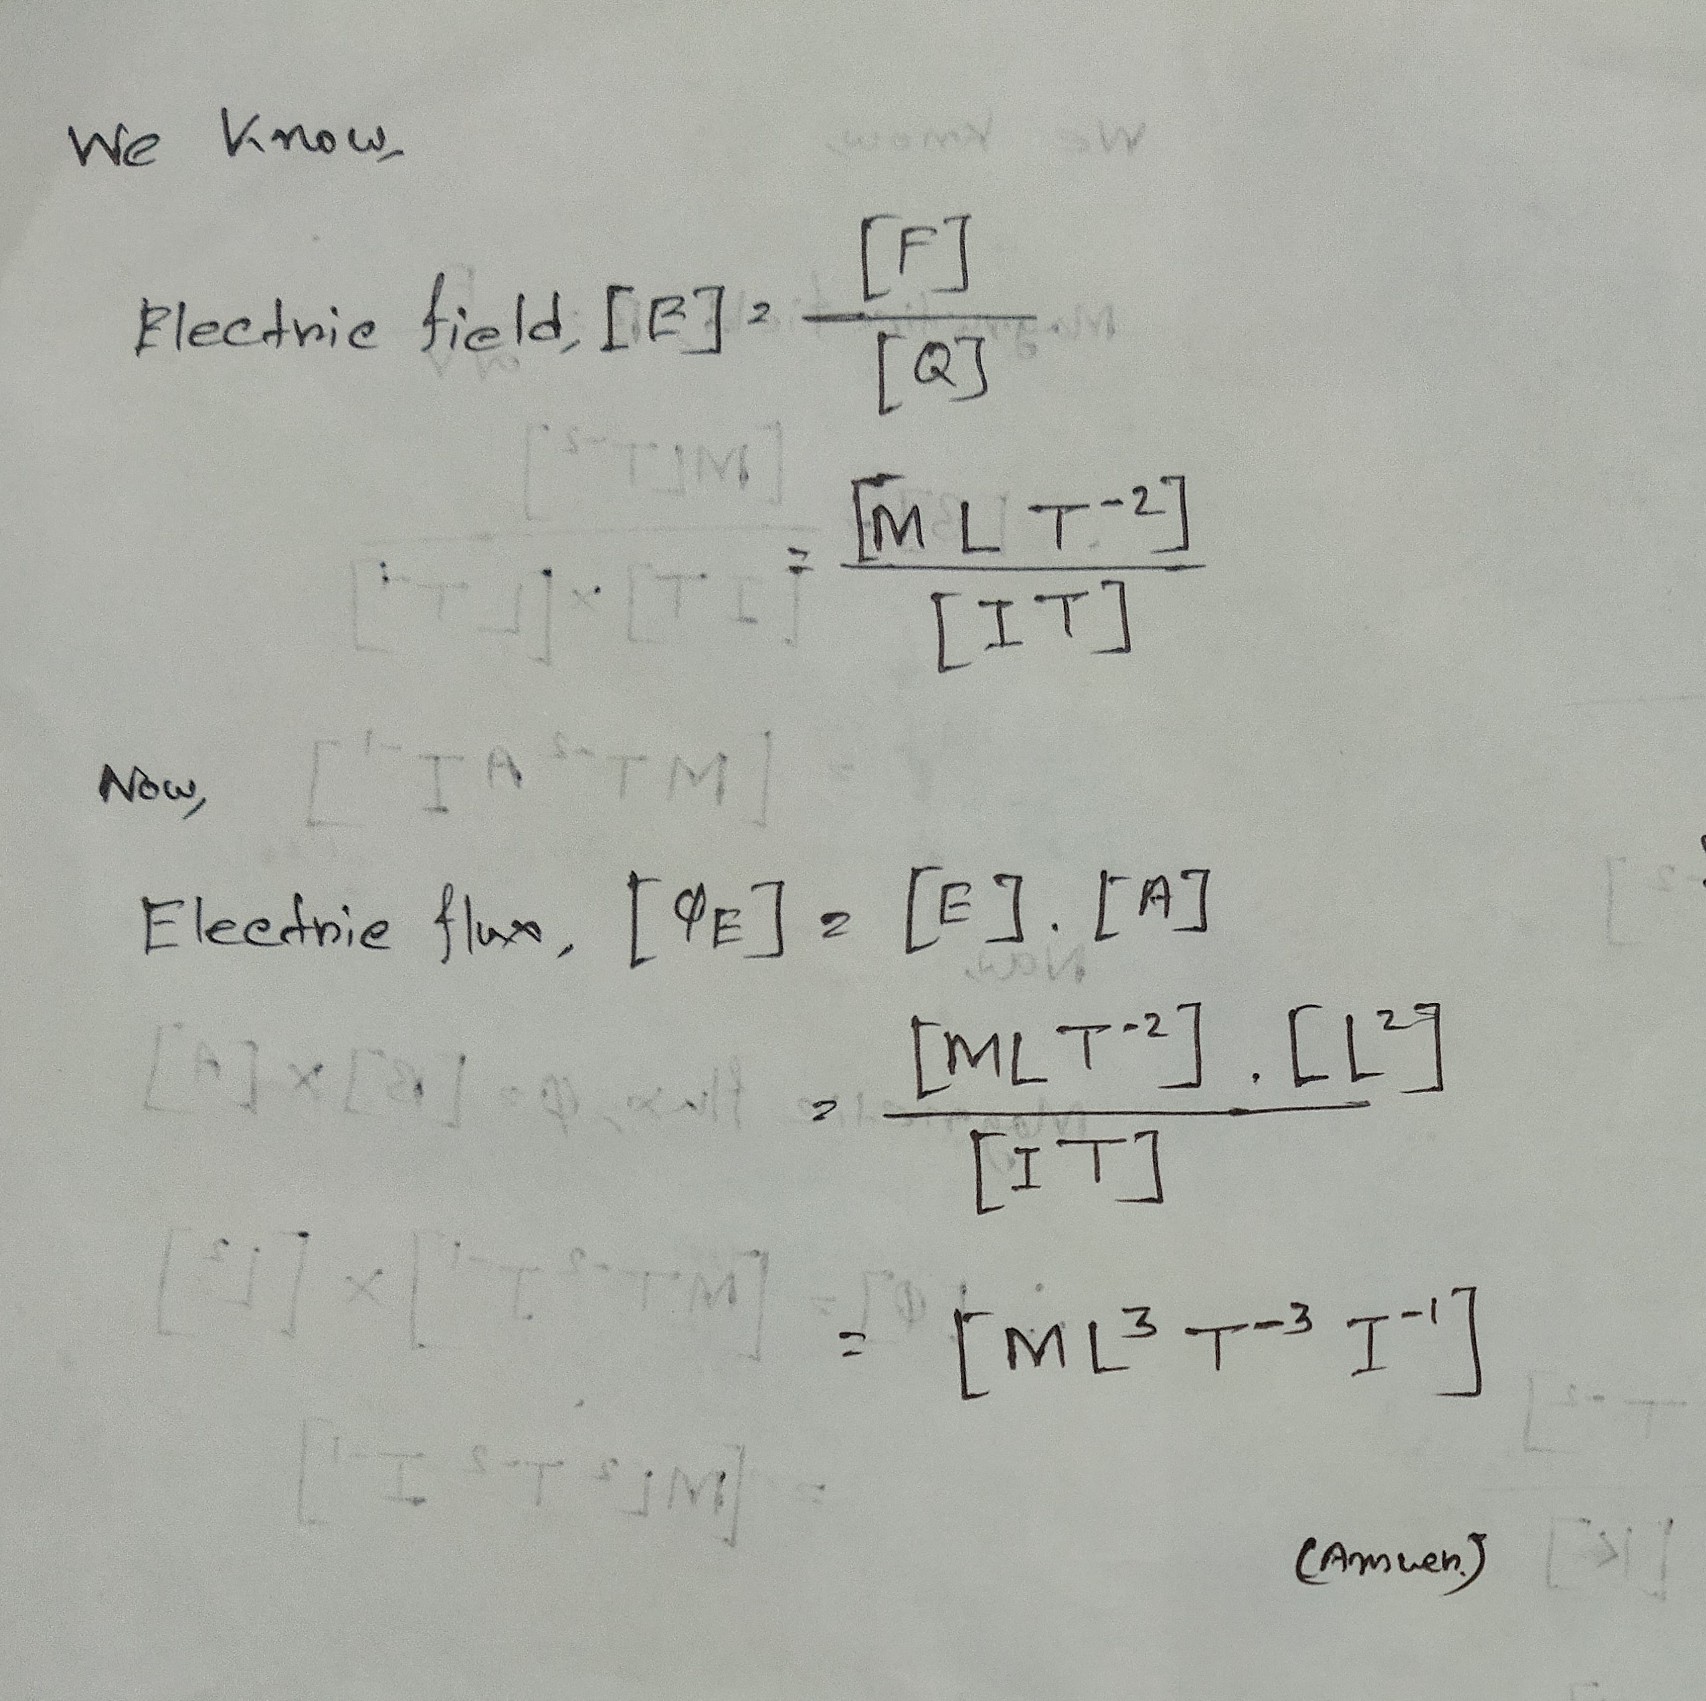 We know,
Electric field, [E] = [F] / [Q]
= [M L T⁻²] / [I T]
Now,
Electric flux, [ΦE] = [E] . [A]
= [MLT⁻²] . [L²] / [IT]
= [ML³ T⁻³ I⁻¹]
(Answer)